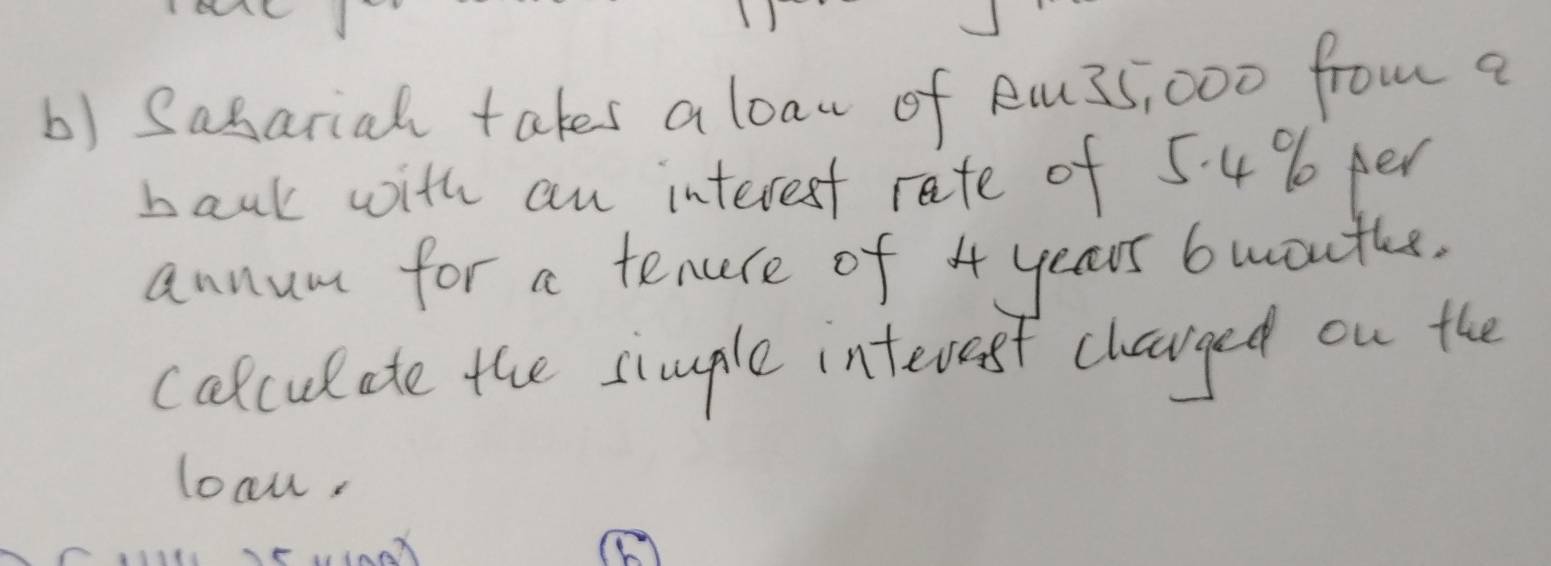 b) Sabariah takes a loan of RM35,000 from a
bank with an interest rate of 5.4% per
annum for a tenure of 4 years 6 months.
Calculate the simple interest charged on the
loan.
(b)